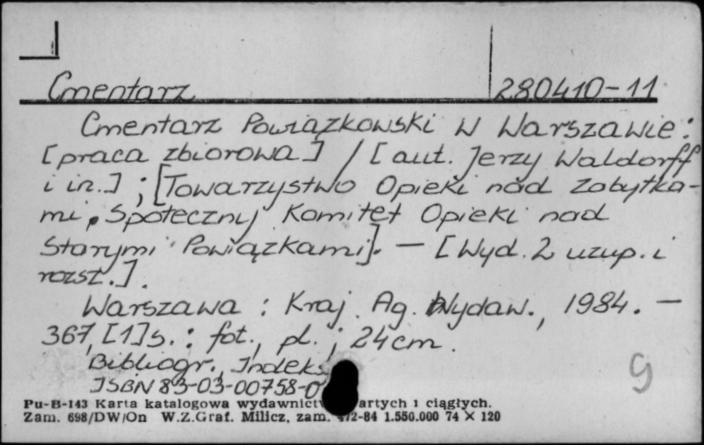 Cmentarz 280410-11
Cmentarz Powązkowski w Warszawie:
[praca zbiorowa] / [aut. Jerzy Waldorff
i in.] ; [Towarzystwo Opieki nad Zabytka-
mi. Społeczny Komitet Opieki nad
Starymi Powązkami]. — [Wyd. 2 uzup. i
rozsz.].
Warszawa : Kraj. Ag. Wydaw., 1984. —
367, [1] s. : fot., pl. ; 24 cm.
Bibliogr., Indeks
ISBN 83-03-00758-0
g
Pu-B-143 Karta katalogowa wydawnictw zwartych i ciągłych.
Zam. 698/DW/On W.Z.Graf. Milicz, zam. 472-84 1.550.000 74 × 120